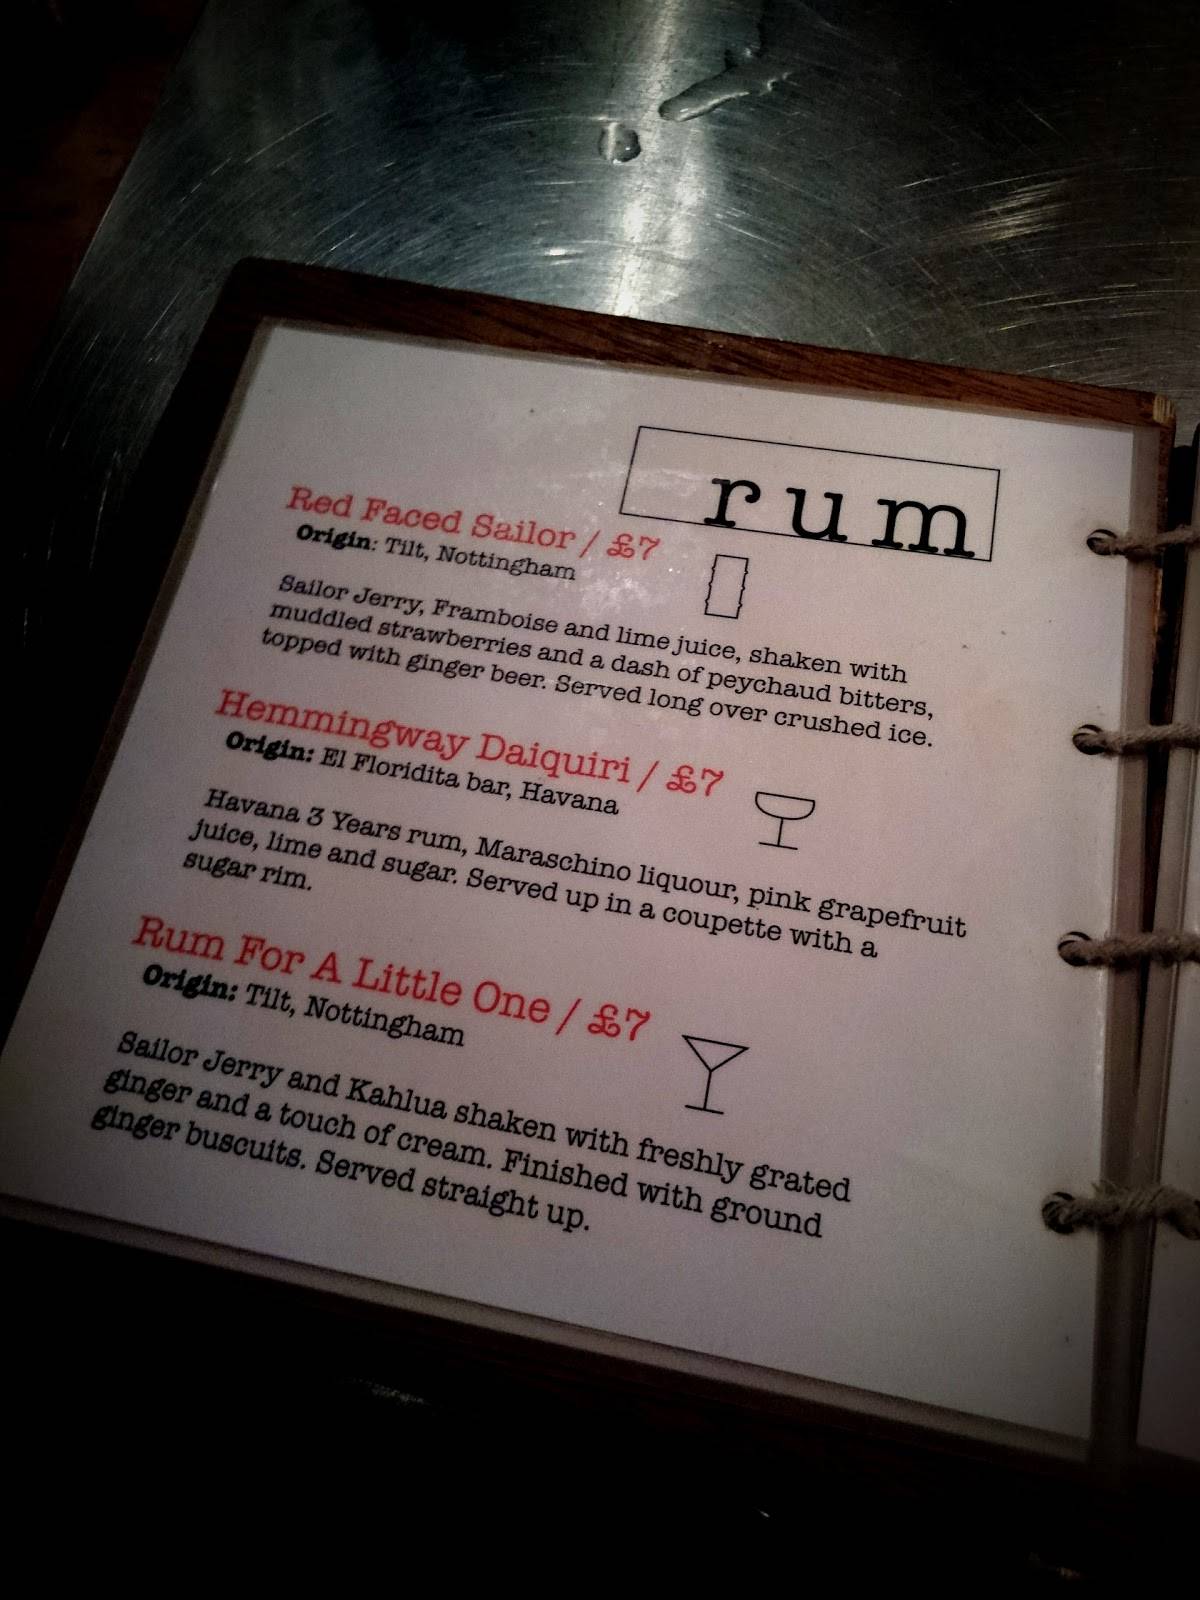 rum
Red Faced Sailor / £7
Origin: Tilt, Nottingham
Sailor Jerry, Framboise and lime juice, shaken with
muddled strawberries and a dash of peychaud bitters,
topped with ginger beer. Served long over crushed ice.
Hemmingway Daiquiri / £7
Origin: El Floridita bar, Havana
Havana 3 Years rum, Maraschino liquour, pink grapefruit
juice, lime and sugar. Served up in a coupette with a
sugar rim.
Rum For A Little One / £7
Origin: Tilt, Nottingham
Sailor Jerry and Kahlua shaken with freshly grated
ginger and a touch of cream. Finished with ground
ginger buscuits. Served straight up.